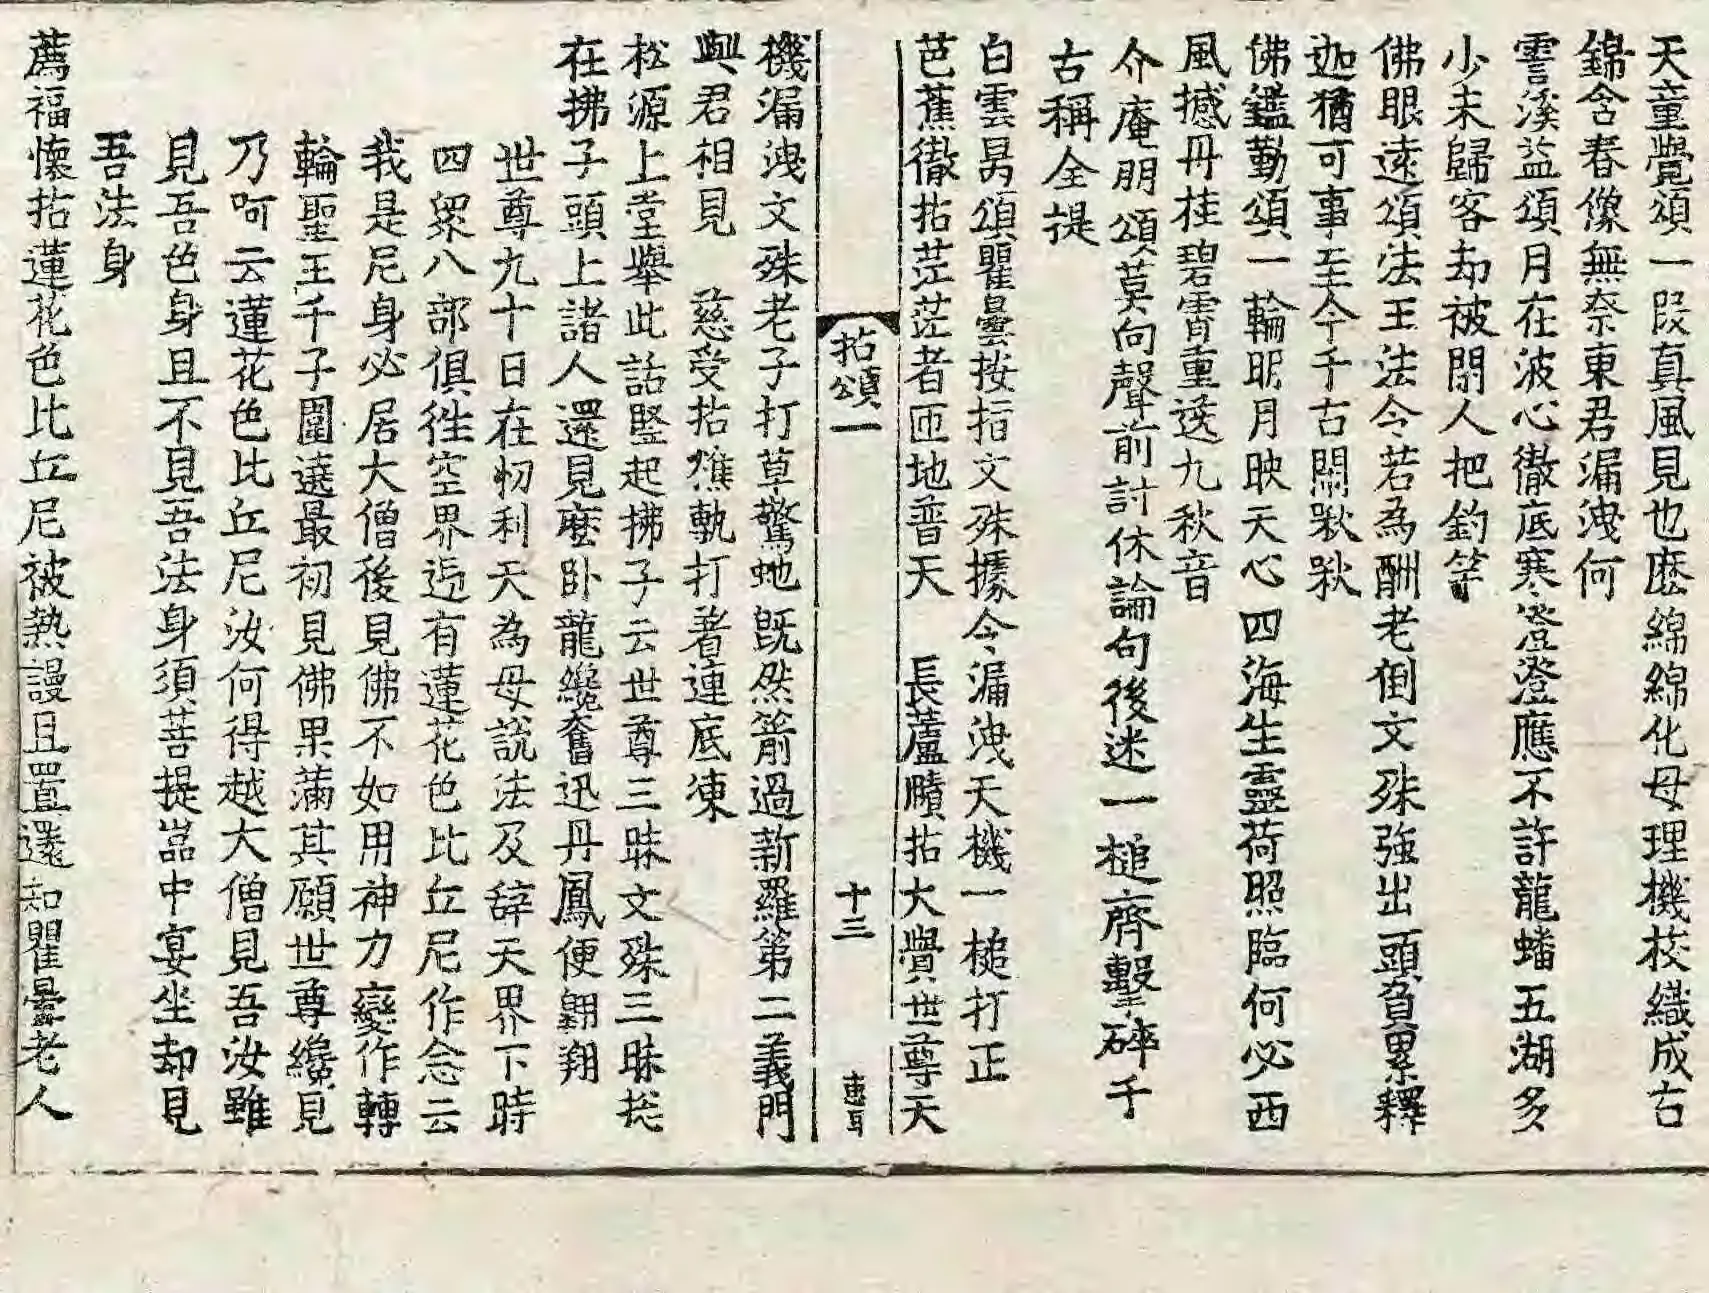 天童覺頌一段真風見也麽綿綿化母理機梭織成古
錦含春像無奈東君漏洩何
霅溪益頌月在波心徹底寒澄澄應不許龍蟠五湖多
少未歸客却被閑人把釣竿
佛眼遠頌法王法令若為酬老倒文殊強出頭負累釋
迦猶可事至今千古閙啾啾
佛鑑勤頌一輪眀月映天心四海生靈荷照臨何必西
風撼丹桂碧霄重送九秋音
介庵朋頌莫向聲前討休論句後迷一槌齊擊碎千
古稱全提
白雲昺頌瞿曇按指文殊據令漏洩天機一槌打正
芭蕉徹拈茫茫者匝地普天　長蘆賾拈大覺世尊天
拈頌一
十三
機漏洩文殊老子打草驚虵旣然箭過新羅第二義門
與君相見　慈受拈燋塼打著連底凍
松源上堂舉此話竪起拂子云世尊三昧文殊三昧捴
在拂子頭上諸人還見麽卧龍纔奮迅丹鳳便翺翔
世尊九十日在忉利天為母說法及辞天界下時
四衆八部俱徃空界迎有蓮花色比丘尼作念云
我是尼身必居大僧後見佛不如用神力變作轉
輪聖王千子圍遶最初見佛果滿其願世尊纔見
乃呵云蓮花色比丘尼汝何得越大僧見吾汝雖
見吾色身且不見吾法身須菩提嵓中宴坐却見
吾法身
薦福懷拈蓮花色比丘尼被熱謾且置還知瞿曇老人